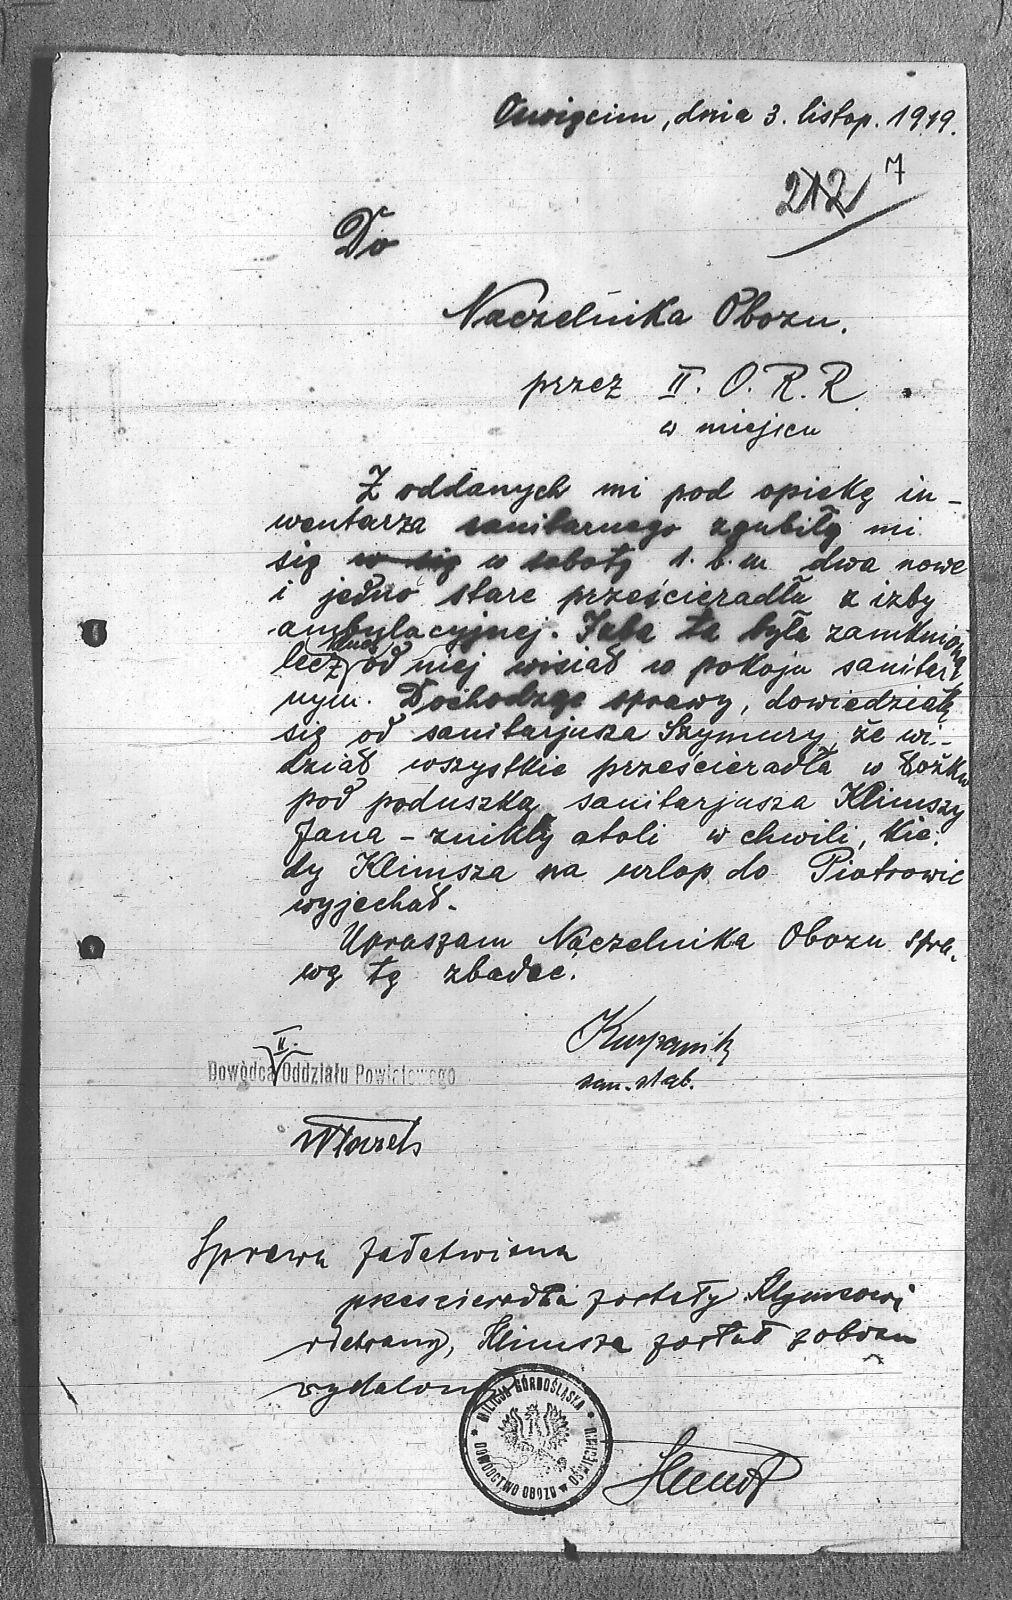 Oswięcim, dnia 3. listop. 1919.
212 7
Do
Naczelnika Obozu.
przez II. O. R. R.
w miejscu
Z oddanych mi pod opiekę in-
wentarza sanitarnego zgubiły mi
się w się w sobotę 1. b. m. dwa nowe
i jedno stare prześcieradła z izby
ambulacyjnej. Izba ta była zamknięta
klucz
lecz od niej wisiał w pokoju sanitar
nym. Dochodząc sprawy, dowiedziałę
się od sanitarjusza Szymury, że wi-
dział wszystkie prześcieradła w łóżku
pod poduszką sanitarjusza Klimszy
Jana – znikły atoli w chwili, kie-
dy Klimsza na urlop do Piotrowic
wyjechał.
Upraszam Naczelnika Obozu spra-
wę tę zbadać.
II.
Dowódca Oddziału Powiatowego
san. słąb.
Sprawa załatwiona
prescieradła zostały
odebrany, Klimsza został z obozu
wydalony
MILICJA GÓRNOŚLĄSKA
DOWÓDCTWO OBOZU w OŚWIĘCIMIU